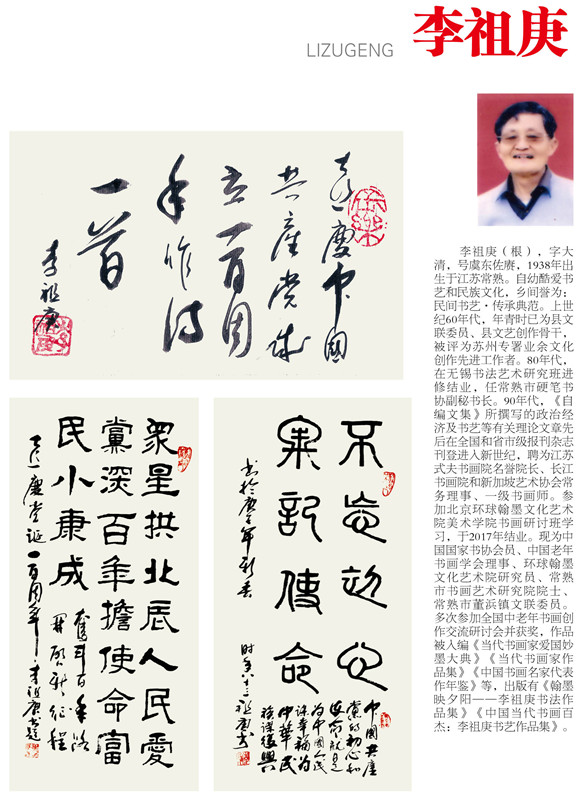 李祖庚
LIZUGENG
喜慶中國
共産党成
立一百周
年作诗
一首
李祖庚
李祖庚（根），字大
清，号虞东佐赓，1938年出
生于江苏常熟。自幼酷爱书
艺和民族文化，乡间誉为：
民间书艺·传承典范。上世
纪60年代，年青时已为县文
联委员、县文艺创作骨干，
被评为苏州专署业余文化
创作先进工作者。80年代，
在无锡书法艺术研究班进
修结业，任常熟市硬笔书
协副秘书长。90年代，《自
编文集》所撰写的政治经
济及书艺等有关理论文章先
后在全国和省市级报刊杂志
刊登进入新世纪，聘为江苏
式夫书画院名誉院长、长江
书画院和新加坡艺术协会常
务理事、一级书画师。参
加北京环球翰墨文化艺术
院美术学院书画研讨班学
习，于2017年结业。现为中
国国家书协会员、中国老年
书画学会理事、环球翰墨
文化艺术院研究员、常熟
市书画艺术研究院院士、
常熟市董浜镇文联委员。
多次参加全国中老年书画创
作交流研讨会并获奖，作品
被入编《当代书画家爱国妙
墨大典》《当代书画家作
品集》《中国书画名家代表
作年鉴》等，出版有《翰墨
映夕阳——李祖庚书法作
品集》《中国当代书画百
杰：李祖庚书艺作品集》。
不忘初心
牢記使命
中國共產
党的初心和
使命就是
为中國人民
谋幸福为
中華民
族谋復興
书於庚子年新春
时年八十三祖庚书
衆星拱北辰人民愛
黨深百年擔使命富
民小康成
奮斗百年路
開启新征程
喜慶党誕一百周年李祖庚书题